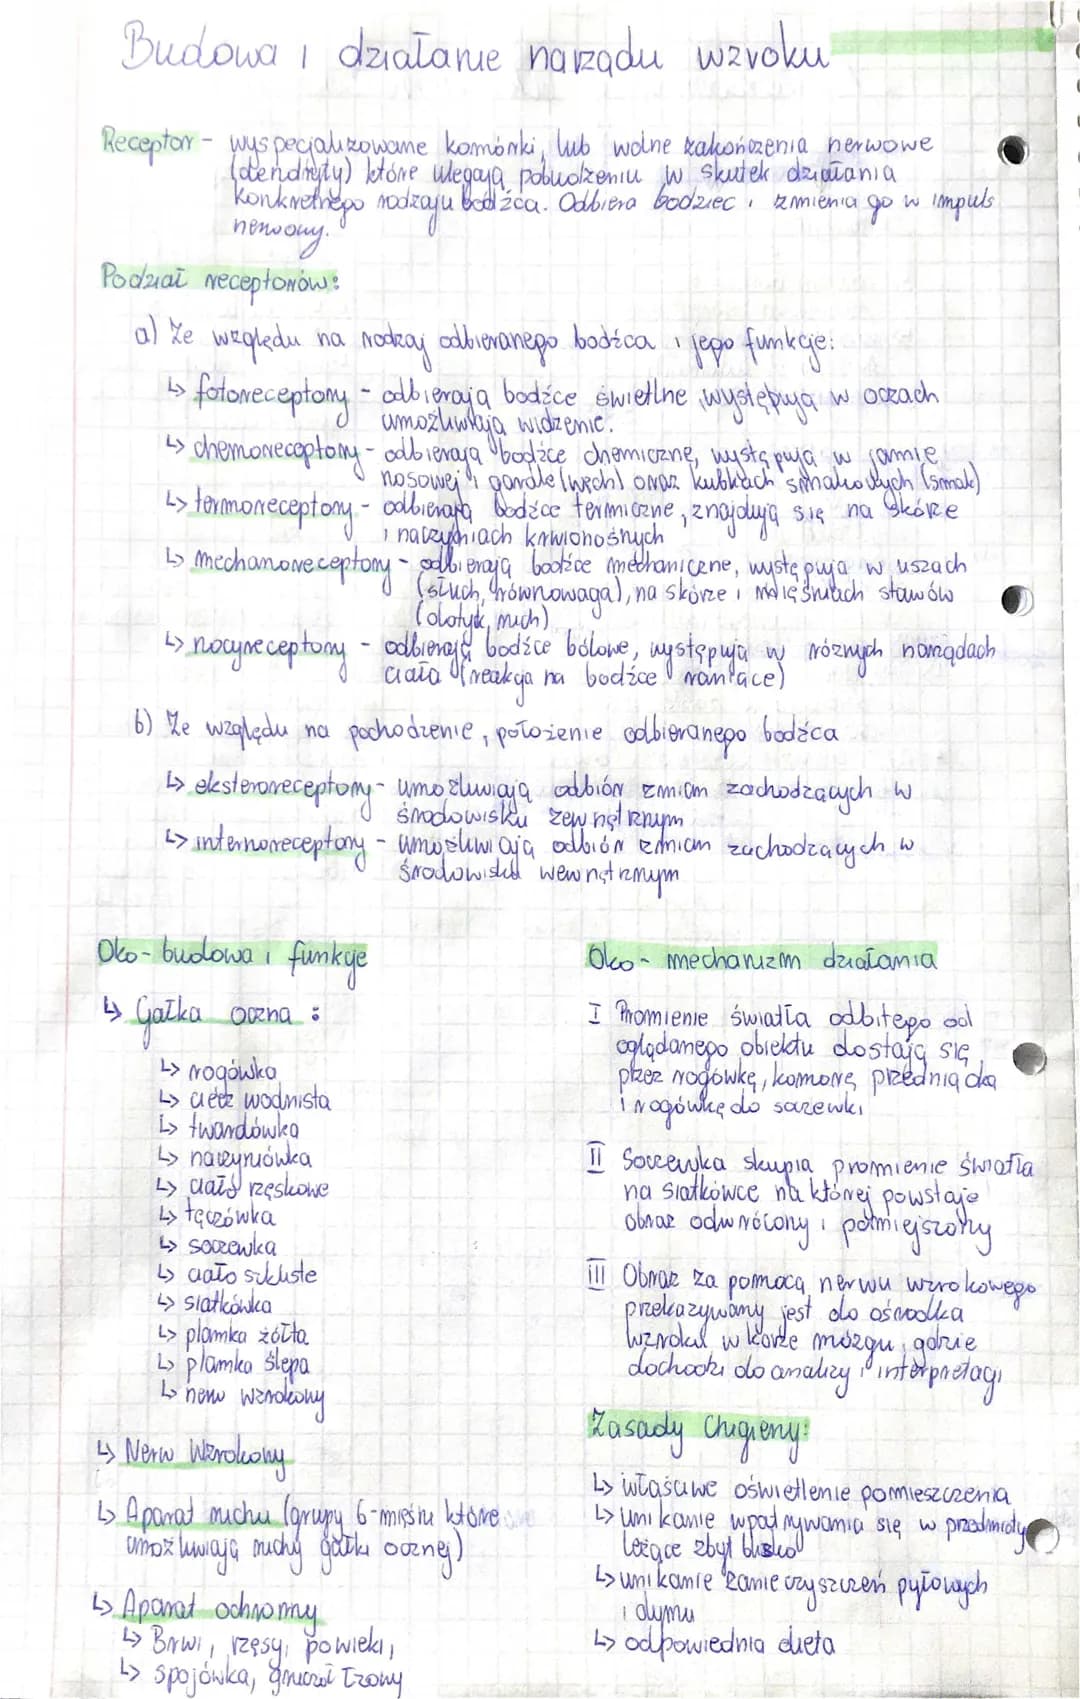 Budowa i działanie narządu wzroku
Receptor - wyspecjalizowane komórki, lub wolne zakończenia nerwowe
(dendryty) które ulegają pobudzeniu w skutek działania
konkretnego rodzaju bodźca. Odbiera bodziec i zmienia go w impuls
nerwowy.
Podział receptorów:
a) Ze względu na rodzaj odbieranego bodźca i jego funkcje:
↳ fotoreceptory - odbierają bodźce świetlne, występują w oczach
umożliwiają widzenie.
↳ chemoreceptory - odbierają bodźce chemiczne, występują w jamie
nosowej i gardle (węch) oraz kubkach smakowych (smak)
↳ termoreceptory - odbierają bodźce termiczne, znajdują się na skórze
i naczyniach krwionośnych
↳ mechanoreceptory - odbierają bodźce mechaniczne, występują w uszach
(słuch, równowaga), na skórze i mięśniach stawów
(dotyk, ruch)
↳ nocyreceptory - odbierają bodźce bólowe, występują w różnych narządach
ciała (reakcja na bodźce raniące)
b) Ze względu na pochodzenie, położenie odbieranego bodźca
↳ eksteroreceptory - umożliwiają odbiór zmian zachodzących w
środowisku zewnętrznym
↳ internoreceptory - umożliwiają odbiór zmian zachodzących w
środowisku wewnętrznym
Oko - budowa i funkcje
↳ Gałka oczna :
↳ rogówka
↳ ciecz wodnista
↳ twardówka
↳ naczyniówka
↳ ciało rzęskowe
↳ tęczówka
↳ soczewka
↳ ciało szkliste
↳ siatkówka
↳ plamka żółta
↳ plamka ślepa
↳ nerw wzrokowy
↳ Nerw Wzrokowy
↳ Aparat ruchu (grupy 6-mięśni które
umożliwiają ruchy gałki ocznej)
↳ Aparat ochronny
↳ Brwi, rzęsy, powieki,
↳ spojówka, gruczoł łzowy
Oko - mechanizm działania
I Promienie światła odbitego od
oglądanego obiektu dostają się
przez rogówkę, komorę przednią oka
i rogówkę do soczewki
II Soczewka skupia promienie światła
na siatkówce na której powstaje
obraz odwrócony i pomiejszony
III Obraz za pomocą nerwu wzrokowego
przekazywany jest do ośrodka
wzroku w korze mózgu, gdzie
dochodzi do analizy i interpretacji
Zasady Chigieny:
↳ właściwe oświetlenie pomieszczenia
↳ unikanie wpatrywania się w przedmioty
leżące zbyt blisko
↳ unikanie zanieczyszczeń pyłowych
i dymu
↳ odpowiednia dieta